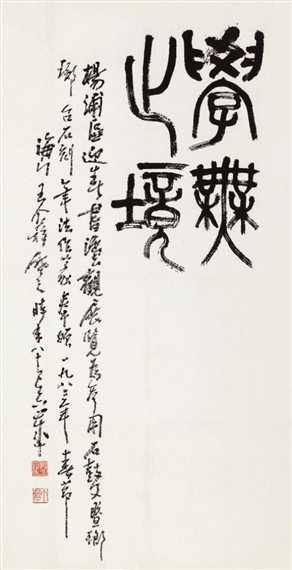 學無
止境
楊浦區迎春書畫觀展覽為參用石鼓文暨瑯
琊台石刻筆法作篆 一九八三年春節
海 王个簃啟之時年八十七